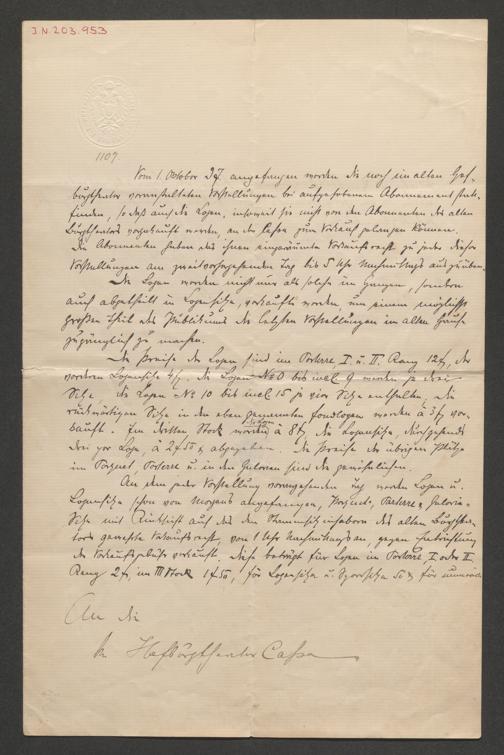 J.N. 203.953
1107
Vom 1. Oktober d. J. angefangen werden die noch im alten Hof-
burgtheater veranstalteten Vorstellungen bei aufgehobenem Abonnement statt-
finden, so daß auch die Logen, insoweit sie nicht von den Abonnenten des alten
Burgtheaters vorgekauft werden, an der Cassa zum Verkauf gelangen können.
Die Abonnenten haben das ihnen eingeräumte Vorkaufsrecht zu jeder dieser
Vorstellungen am zweitvorhergehenden Tag bis 5 Uhr Nachmittags auszuüben.
Die Logen werden nicht nur als solche im Ganzen, sondern
auch abgetheilt in Logensitze, verkauft werden, um einem möglichst
großen Theil des Publikums die letzten Vorstellungen im alten Hause
zugänglich zu machen.
Die Preise der Logen sind im Parterre I. u. II. Rang 12 f, der
vorderen Logensitze 4 f. Die Logen No 0 bis incl 9 werden je drei
Sitze, die Logen No 10 bis incl 15 je vier Sitze enthalten; die
rückwärtigen Sitze in den eben genannten Fondlogen werden à 3 f ver-
kauft. Im dritten Stock werden Logen à 8 f, die Logensitze, durchgehends
drei per Loge, à 2 f 50 x abgegeben. Die Preise der übrigen Plätze
im Parquet, Parterre u. in den Galerien sind die gewöhnlichen.
An dem jeder Vorstellung vorangehenden Tag werden Logen u.
Logensitze schon von Morgens angefangen, Parquet-, Parterre- u. Galerie-
Sitze mit Rücksicht auf das den Stammsitzinhabern des alten Burgthea-
ters gewahrte Vorkaufsrecht, von 1 Uhr Nachmittags an, gegen Entrichtung
der Vorkaufsgebühr verkauft. Diese beträgt für Logen im Parterre I. oder II.
Rang 2 f, im III Stock 1 f 50, für Logensitze u. Sperrsitze 50 x, für
An die
k. Hofburgtheater Cassa